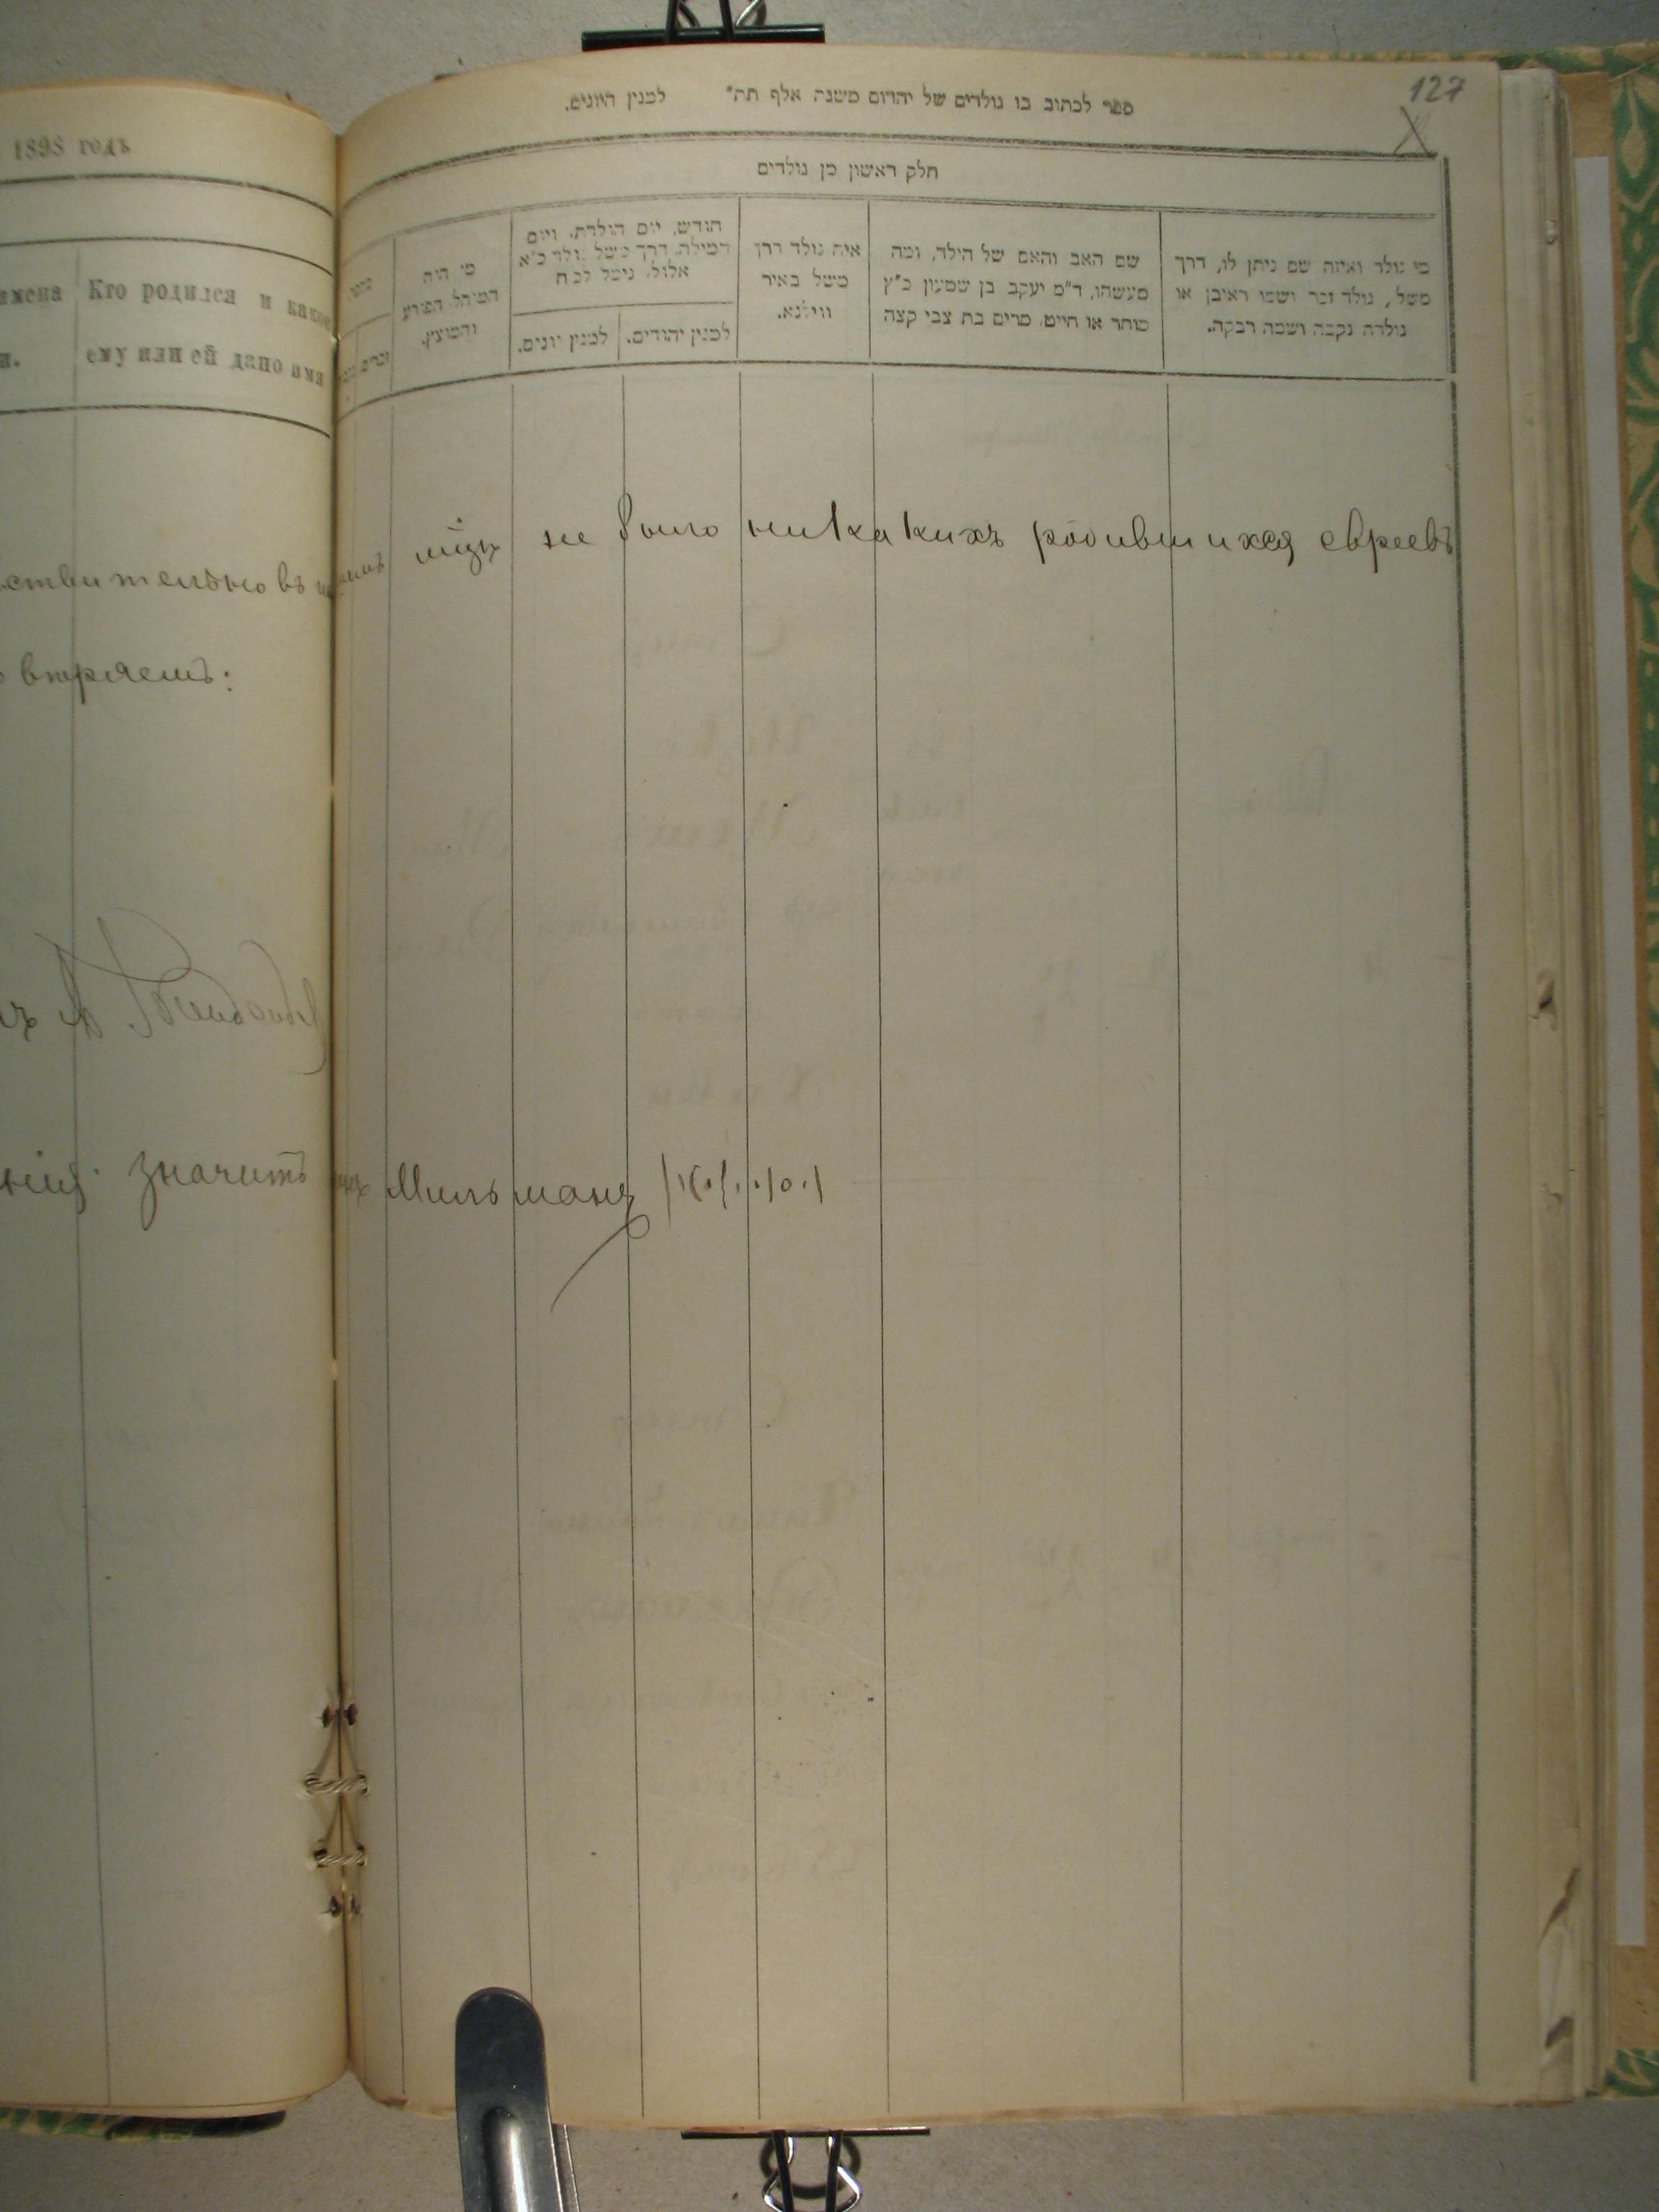 127
1898 годъ
ספר לכתוב בו נולדים של יהודים משנה אלף תה״ למנין היונים.
חלק ראשון מן נולדים
Кто родился и какое
ему или ей дано имя
מי היה
המוהל. הפורע
והמוצץ.
חודש, יום הולדת, ויום
המילה. דרך משל נולד כ״א
אלול. נימל לכח
למנין יהודים.
למנין יונים.
איה נולד דרך
משל באיר
ווילנא.
שם האב והאם של הילד, ומה
מעשהו, ד״מ יעקב בן שמעון כ״ץ
סוחר או חייט. מרים בת צבי קצה
מי נולד ואיזה שם ניתן לו, דרך
משל, נולד זכר ושמו ראיבן או
נולדה נקבה ושמה רבקה.
не было никакихъ родившихся евреевъ
ствительно въ
вѣряемъ:
значитъ
Мильманъ